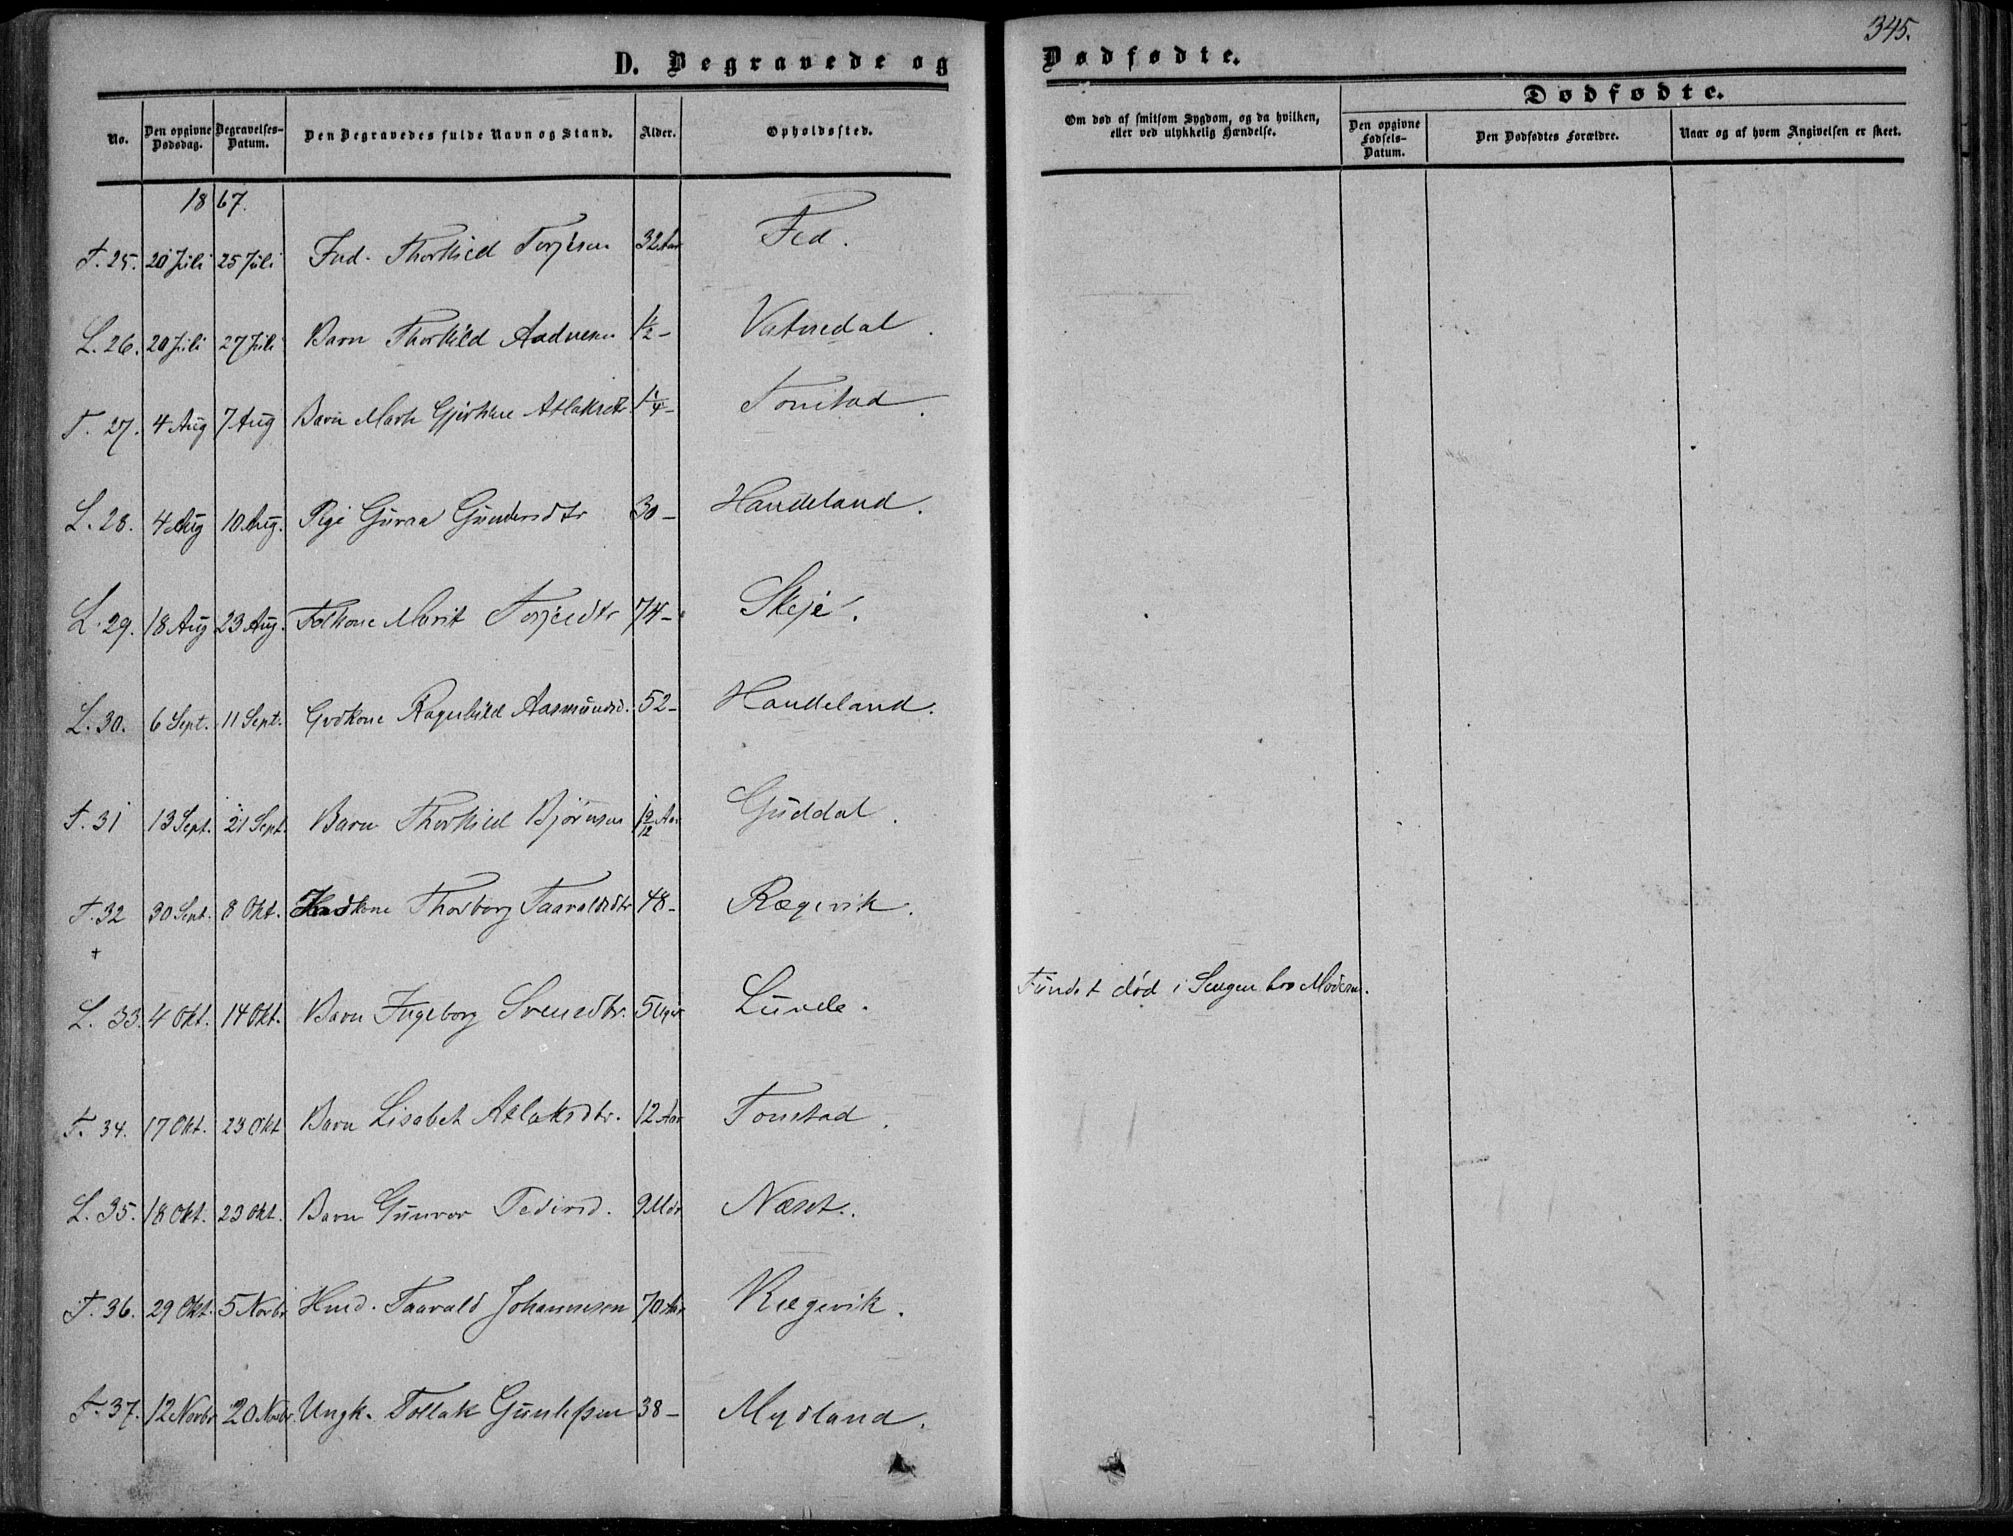 345.
D. Begravede og Dødfødte.
No. Den opgivne Dødsdag. Begravelses-Datum. Den Begravedes fulde Navn og Stand. Alder. Opholdssted.
Om død af smitsom Sygdom, og da hvilken, eller ved ulykkelig Hændelse.
Dødfødte.
Den opgivne Fødsels-Datum. Den Dødfødtes Forældre. Naar og af hvem Angivelsen er skeet.
1867.
F. 25. 20 Juli 25 Juli Ind. Thorkild Torjesen 32 Aar Fed.
L. 26. 20 Juli 27 Juli Barn Thorkild Aadnesen 1/2 - Vatnedal.
T. 27. 4 Aug 7 Aug Barn Marte Gjertine Atlaksdtr 1/4 - Tonstad.
L. 28. 4 Aug 10 Aug. Pige Guroe Gundersdtr 30 - Handeland.
L. 29. 18 Aug 23 Aug. Folkone Marit Torjesdtr 74 - Skeje.
L. 30. 6 Sept. 11 Sept. Grdkone Ragnhild Aasmundsd. 52 - Handeland.
F. 31 13 Sept. 21 Sept. Barn Thorkild Bjørnsen 1 9/12 Aar Guddal.
F. 32 30 Sept. 8 Okt. Thorborg Taaraldsdtr 48 - Rægevik.
+
L. 33. 4 Okt. 14 Okt. Barn Ingeborg Svensdtr. 5 Uger Lunde. Fundet død i Sengen hos Moderen.
F. 34. 17 Okt. 23 Okt Barn Lisabet Atlaksdtr. 12 Aar Tonstad.
L. 35. 18 Okt. 23 Okt. Barn Gunvor Tedisd. 9 Mdr Næset.
F. 36. 29 Okt. 5 Novbr Hmd. Taarald Johannesen 70 Aar Rægevik.
F. 37. 12 Novbr 20 Novbr. Ungk. Tollak Gunlefsen 38 - Mydland.